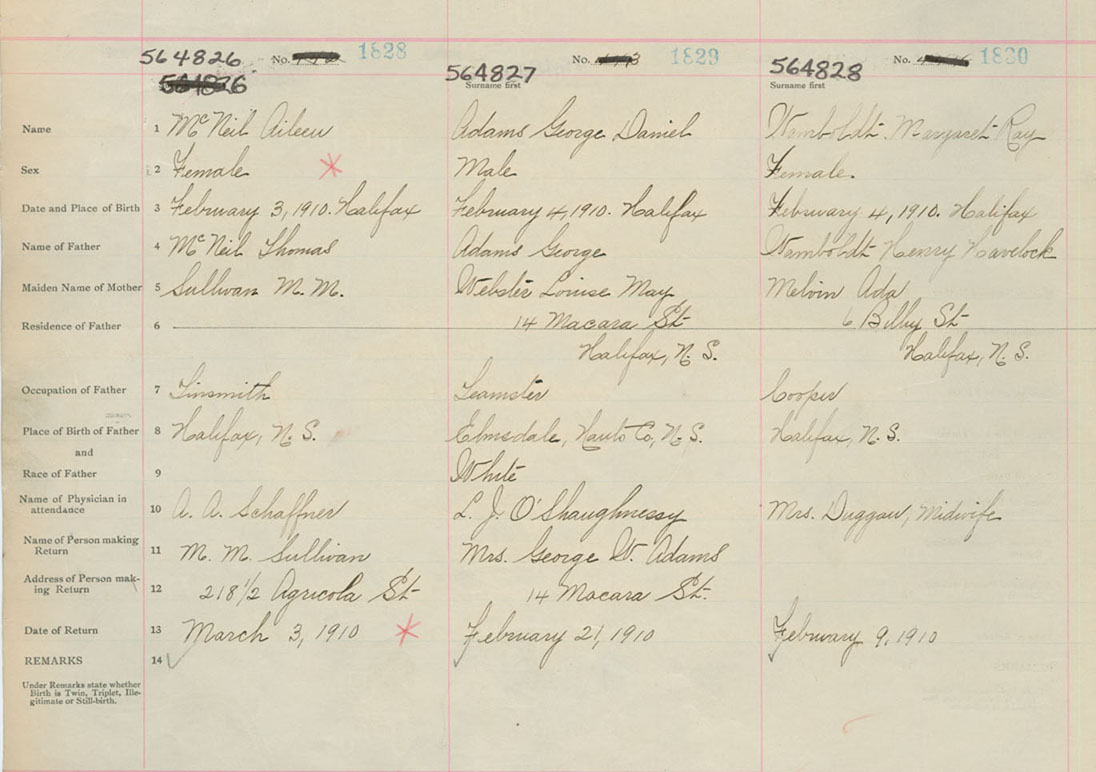 564826 No. 1828 No. 1829 No. 1830
564826 564827 564828
Surname first Surname first
Name 1 McNeil Aileen Adams George Daniel Wamboldt Margaret Ray
Sex 2 Female Male Female.
Date and Place of Birth 3 February 3, 1910. Halifax February 4, 1910. Halifax February 4, 1910. Halifax
Name of Father 4 McNeil Thomas Adams George Wamboldt Henry Havelock
Maiden Name of Mother 5 Sullivan M. M. Webster Louise May Melvin Ada
Residence of Father 6 14 Macara St 6 Bilby St
Halifax, N. S. Halifax, N. S.
Occupation of Father 7 Tinsmith Teamster Cooper
Place of Birth of Father 8 Halifax, N. S. Elmsdale, Hants Co, N. S. Halifax, N. S.
and
Race of Father 9 White
Name of Physician in
attendance 10 A. A. Schaffner L. J. O'Shaughnessy Mrs. Duggan, Midwife
Name of Person making
Return 11 M. M. Sullivan Mrs. George W. Adams
Address of Person mak-
ing Return 12 218 1/2 Agricola St 14 Macara St.
Date of Return 13 March 3, 1910 February 21, 1910 February 9, 1910
REMARKS 14
Under Remarks state whether
Birth is Twin, Triplet, Ille-
gitimate or Still-birth.